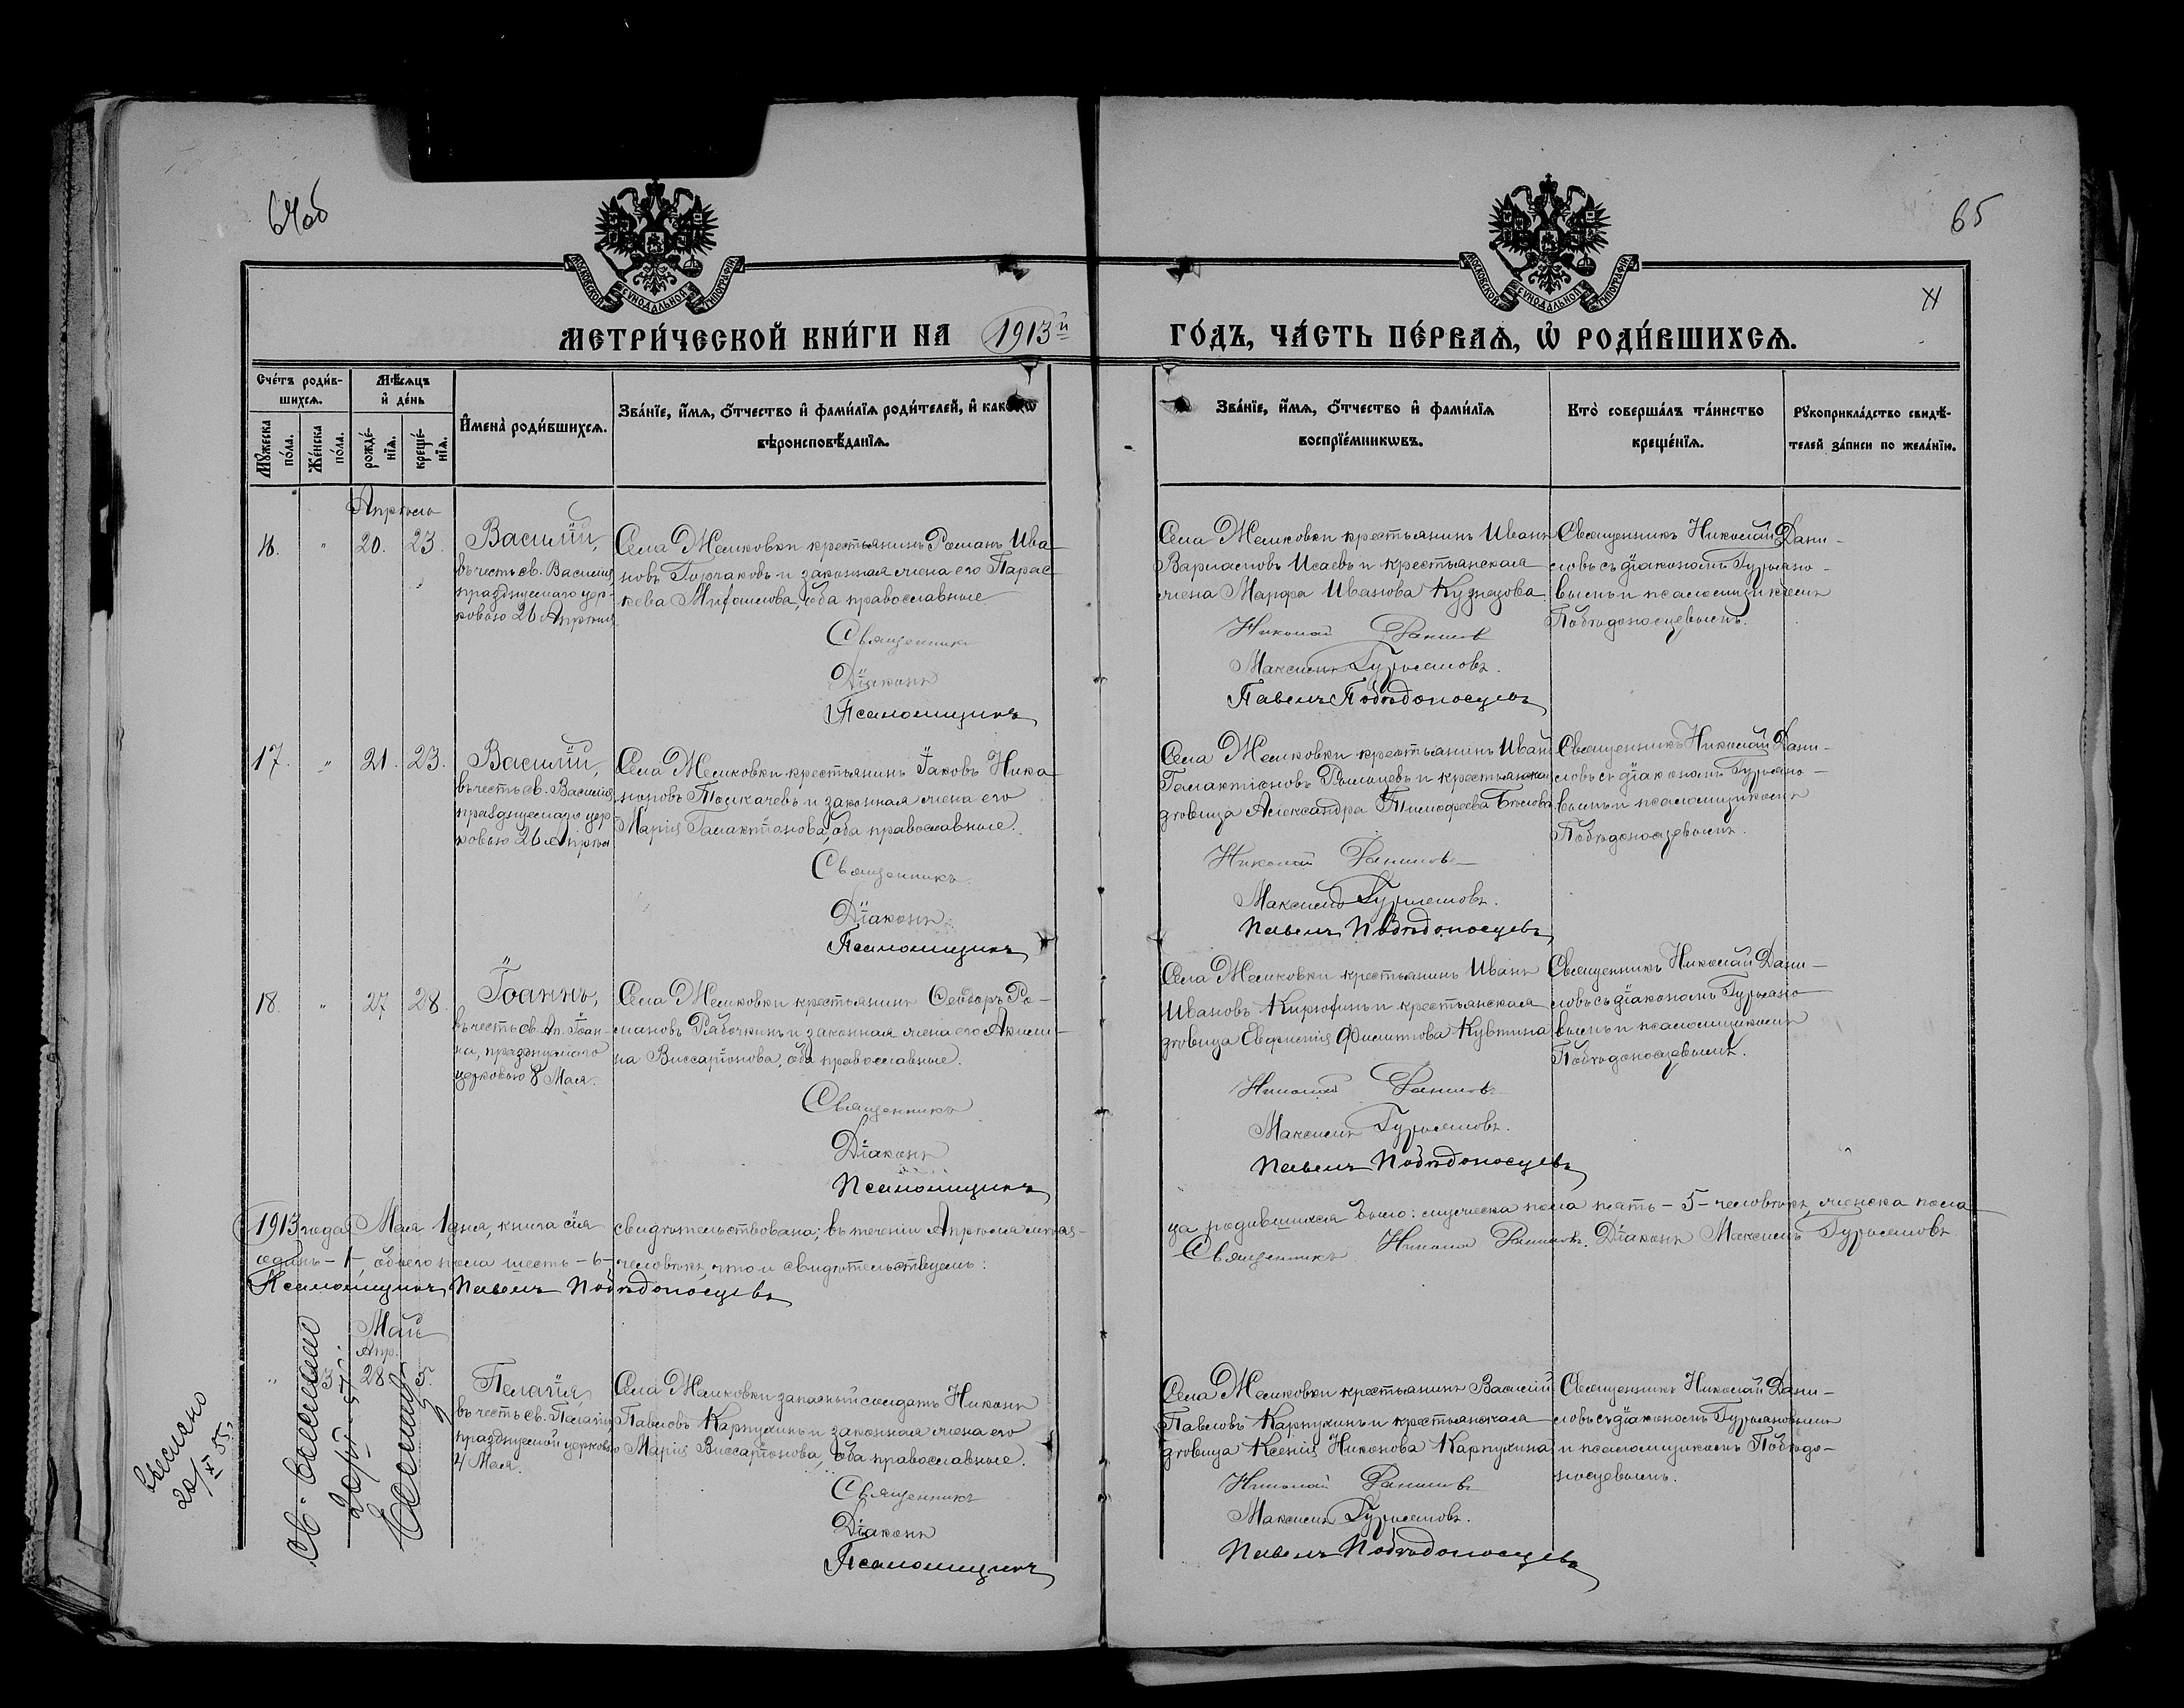 64об
65
МОСКОВСКОЙ СѴНОДАЛЬНОЙ ТИПОГРАФІИ
МОСКОВСКОЙ СѴНОДАЛЬНОЙ ТИПОГРАФІИ
МЕТРИ́ЧЕСКОЙ КНИ́ГИ НА 1913й ГО́ДЪ, ЧА́СТЬ ПЕ́РВАѦ, Ѽ РОДИ́ВШИХСѦ.
Сче́тъ роди́в-
шихсѧ.
Мꙋжеска по́ла.
Же́нска по́ла.
Мѣ́сѧцъ
и҆ де́нь
рожде́-
нїѧ.
креще́-
нїѧ.
И҆мена̀ роди́вшихсѧ.
Зва́нїе, и҆́мѧ, ѻ҆́тчество и҆ фами́лїѧ роди́телей, и҆ како́гѡ
вѣроисповѣ́данїѧ.
Зва́нїе, и҆́мѧ, ѻ҆́тчество и҆ фами́лїѧ
воспрїе́мникѡвъ.
Кто̀ соверша́лъ та́инство
креще́нїѧ.
Рꙋкоприкла́дство свидѣ́-
телей за́писи по жела́нїю.
Апрѣль
16. " 20. 23.
Василій,
въ честь св. Василія,
празднуемаго цер-
ковью 26 Апрѣля
Села Жешковки крестьянинъ Романъ Ива-
новъ Горчаковъ и законная жена его Парас-
кева Михаилова, оба православные
Священникъ
Діаконъ
Псаломщикъ
Села Жешковки крестьянинъ Иванъ
Варламовъ Исаевъ и крестьянская
жена Марфа Иванова Кузнецова
Николай Данилов
Максимъ Гурьяновъ.
Павелъ Побѣдоносцевъ
Священникъ Николай Дани-
ловъ съ діакономъ Гурьяно-
вымъ и псаломщикомъ
Побѣдоносцевымъ.
17. " 21. 23.
Василій,
въ честь св. Василія,
празднуемаго цер-
ковью 26 Апрѣля
Села Жешковки крестьянинъ Іаковъ Ника-
норовъ Толкачевъ и законная жена его
Марія Галактіонова, оба православные.
Священникъ
Діаконъ
Псаломщикъ
Села Жешковки крестьянинъ Иванъ
Галактіоновъ и крестьянская
дѣвица Александра Тимофеева Бѣлова
Николай Данилов
Максимъ Гурьяновъ.
Павелъ Побѣдоносцевъ
Священникъ Николай Дани-
ловъ съ діакономъ Гурьяно-
вымъ и псаломщикомъ
Побѣдоносцевымъ.
18. " 27 28
Іоаннъ,
въ честь св. Ап. Іоан-
на, празднуемаго
церковью 8 Мая.
Села Жешковки крестьянинъ Ѳеодоръ Ро-
мановъ Рябочкинъ и законная жена его Акили-
на Виссаріонова, оба православные.
Священникъ
Діаконъ
Псаломщикъ
Села Жешковки крестьянинъ Иванъ
Ивановъ и крестьянская
дѣвица Евгенія Филиппова
Николай Данилов
Максимъ Гурьяновъ.
Павелъ Побѣдоносцевъ
Священникъ Николай Дани-
ловъ съ діакономъ Гурьяно-
вымъ и псаломщикомъ
Побѣдоносцевымъ.
1913 года Мая 1 дня, книга сія свидѣтельствована; въ теченіи Апрѣля мѣся-
ца родившихся было: мужеска пола пять – 5 – человѣкъ, женска пола
одинъ – 1 –, обоего пола шесть – 6 – человѣкъ, что и свидѣтельствуемъ:
Священникъ Николай Данилов. Діаконъ Максимъ Гурьяновъ
Псаломщикъ Павелъ Побѣдоносцевъ
Май
Апр.
" 3. 28 5.
Пелагія,
въ честь св. Пелагіи,
празднуемой церковью
4 Мая.
Села Жешковки запасный солдатъ Никонъ
Павловъ Карпухинъ и законная жена его
Марія Виссаріонова, оба православные.
Священникъ
Діаконъ
Псаломщикъ
Села Жешковки крестьянинъ Василій
Павловъ Карпухинъ и крестьянская
дѣвица Ксенія Никонова Карпухина
Николай Данилов
Максимъ Гурьяновъ.
Павелъ Побѣдоносцевъ
Священникъ Николай Дани-
ловъ съ діакономъ Гурьяновымъ
и псаломщикомъ Побѣдо-
носцевымъ.